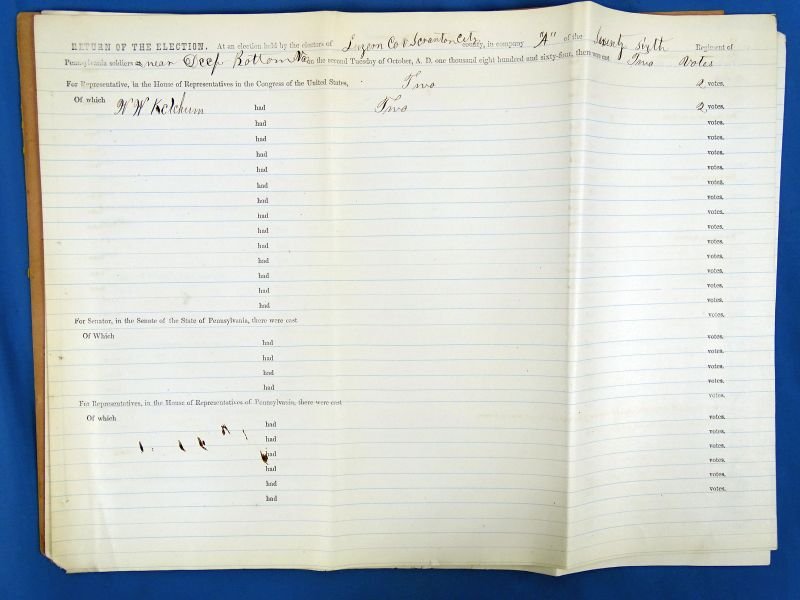 RETURN OF THE ELECTION. At an election held by the electors of Luzern Co & Scranton City county, in company "A" of the Seventy Sixth Regiment of
Pennsylvania soldiers near Deep Bottom Va on the second Tuesday of October, A. D. one thousand eight hundred and sixty-four, there was cast Two Votes
For Representative, in the House of Representatives in the Congress of the United States, Two 2 votes.
Of which W W Ketchum had Two 2 votes.
had votes.
had votes.
had votes.
had votes.
had votes.
had votes.
had votes.
had votes.
had votes.
had votes.
had votes.
had votes.
had votes.
For Senator, in the Senate of the State of Pennsylvania, there were cast votes.
Of Which
had votes.
had votes.
had votes.
had votes.
For Representatives, in the House of Representatives of Pennsylvania, there were cast votes.
Of which
had votes.
had votes.
had votes.
had votes.
had votes.
had votes.